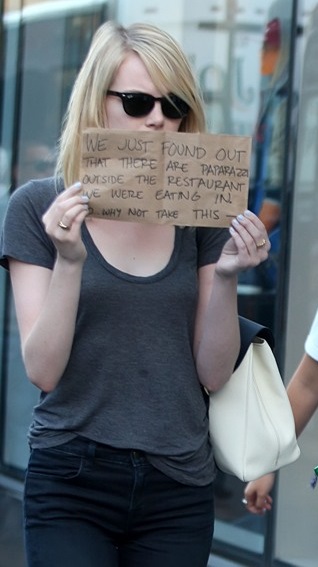 WE JUST FOUND OUT
THAT THERE ARE PAPARAZZI
OUTSIDE THE RESTAURANT
WE WERE EATING IN.
WHY NOT TAKE THIS —